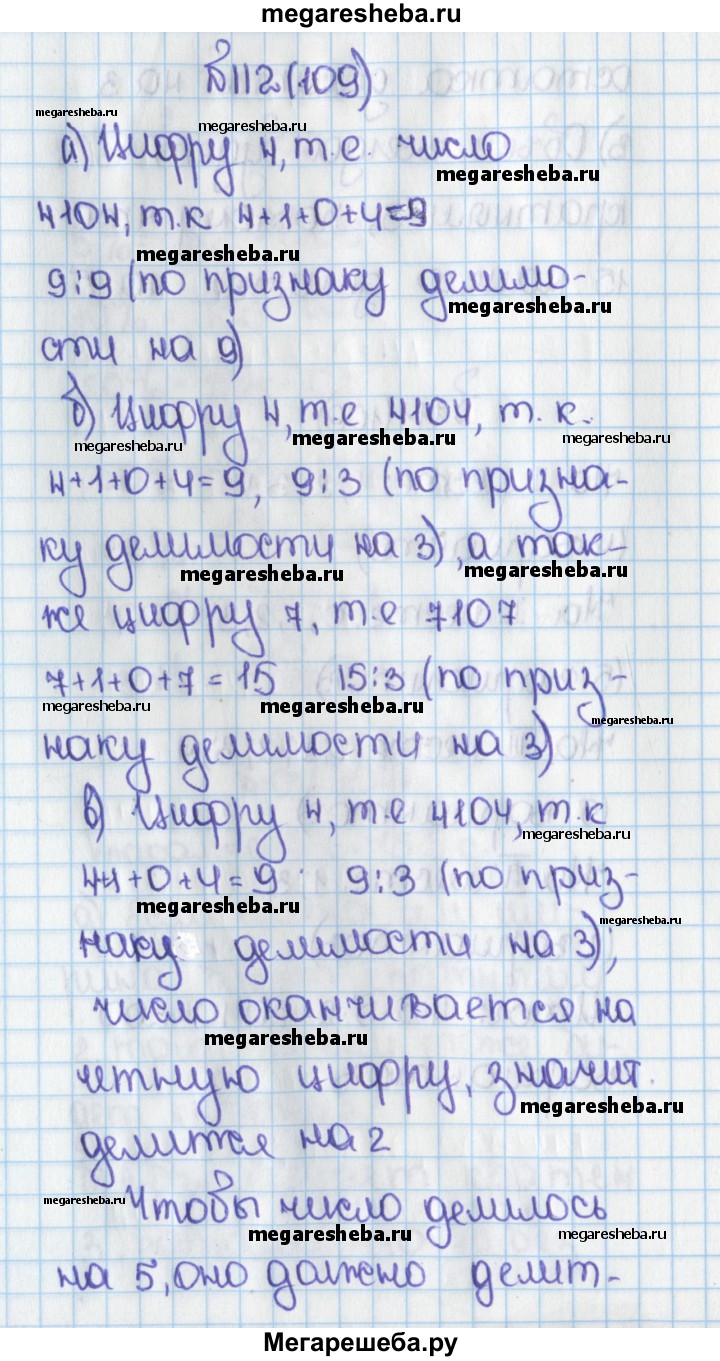 megaresheba.ru
№112(109)
megaresheba.ru
megaresheba.ru
а) Цифру 4, т.е. число
megaresheba.ru
4104, т.к 4+1+0+4=9
megaresheba.ru
9:9 (по признаку делимо-
megaresheba.ru
сти на 9)
б) Цифру 4, т.е 4104, т.к.
megaresheba.ru megaresheba.ru megaresheba.ru
4+1+0+4=9, 9:3 (по призна-
ку делимости на 3), а так-
megaresheba.ru megaresheba.ru
же цифру 7, т.е 7107
7+1+0+7=15 15:3 (по приз-
megaresheba.ru megaresheba.ru
megaresheba.ru
наку делимости на 3)
в) Цифру 4, т.е 4104, т.к
megaresheba.ru
4+1+0+4=9 9:3 (по приз-
megaresheba.ru
megaresheba.ru
наку делимости на 3);
число оканчивается на
megaresheba.ru
четную цифру, значит
megaresheba.ru
делится на 2
megaresheba.ru
Чтобы число делилось
megaresheba.ru megaresheba.ru
на 5, оно должно делит-
Мегарешеба.ру